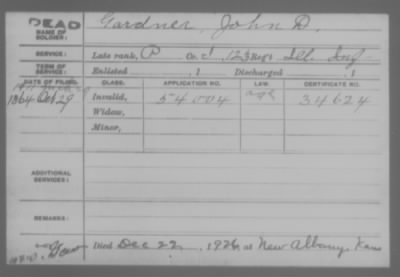 DEAD
NAME OF SOLDIER: Gardner, John D.
SERVICE: Late rank, P Co. I, 123 Reg't Ill. Inf
TERM OF SERVICE: Enlisted , 1 Discharged , 1
DATE OF FILING. CLASS. APPLICATION NO. LAW. CERTIFICATE NO.
1864 Oct 29 Invalid, 54004 34624
Widow,
Minor,
ADDITIONAL SERVICES:
REMARKS:
Died Dec 22, 1926, at New Albany, Kans